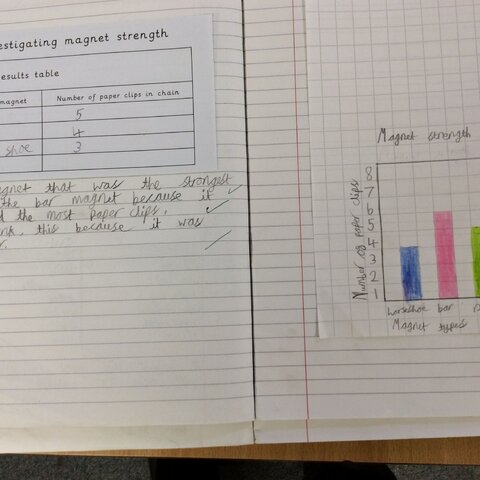 estigating magnet strength
esults table
magnet
Number of paper clips in chain
5
4
shoe
3
agnet that was the strongest
the bar magnet because it
d the most paper clips.
ink, this because it was
r.
Magnet strength
Number of paper clips
8
7
6
5
4
3
2
1
horseshoe bar
Magnet types